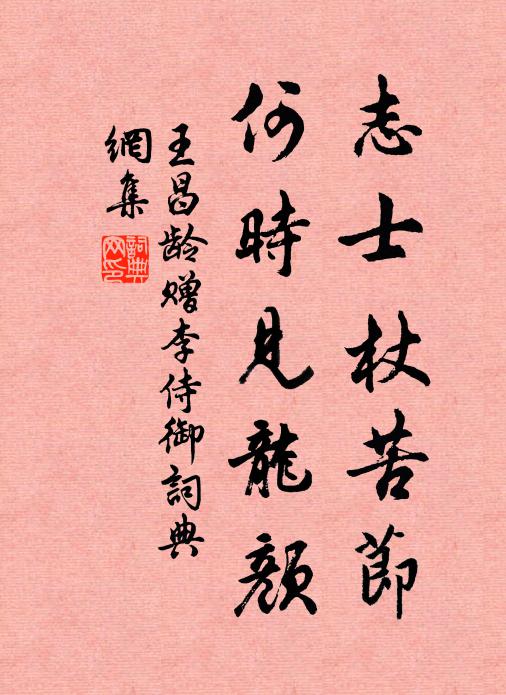 志士杖苦節
何時見龍顏
王昌龄赠李侍御詞典
網集
詞典
网印